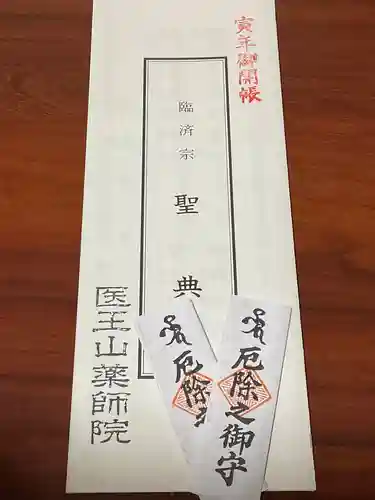 寅年御開帳
臨済宗
聖典
医王山薬師院
厄除之御守
厄除